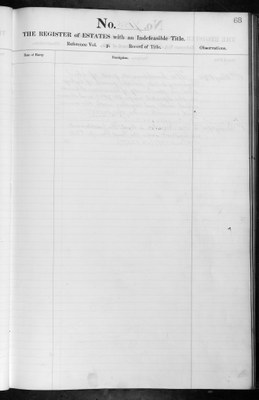 68
No.
THE REGISTER of ESTATES with an Indefeasible Title.
Reference Vol. p. Record of Title.
Observations.
Date of Entry.
Description.